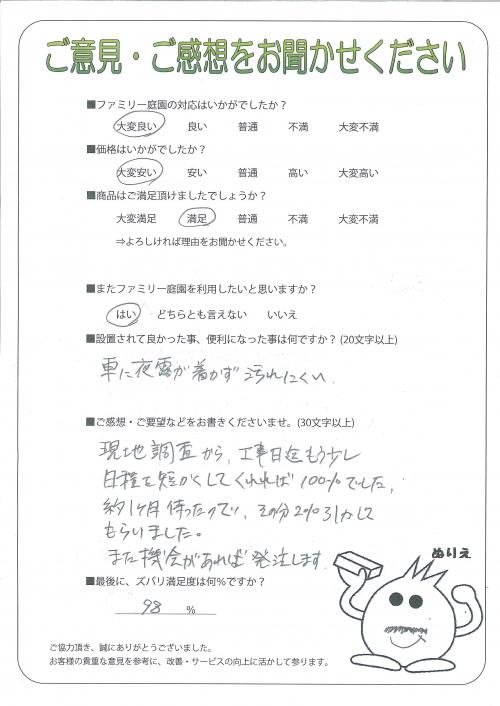 ご意見・ご感想をお聞かせください
■ファミリー庭園の対応はいかがでしたか？
大変良い 良い 普通 不満 大変不満
■価格はいかがでしたか？
大変安い 安い 普通 高い 大変高い
■商品はご満足頂けましたでしょうか？
大変満足 満足 普通 不満 大変不満
⇒よろしければ理由をお聞かせください。
■またファミリー庭園を利用したいと思いますか？
はい どちらとも言えない いいえ
■設置されて良かった事、便利になった事は何ですか？(20文字以上)
車に夜露が着かず汚れにくい
■ご感想・ご要望などをお書きくださいませ。(30文字以上)
現地調査から、工事日迄もう少し
日程を短かくしてくれれば100%でした。
約1ヶ月待ったので、その分2%引かして
もらいました。
また機会があれば発注します
ぬりえ
■最後に、ズバリ満足度は何%ですか？
98 %
ご協力頂き、誠にありがとうございました。
お客様の貴重な意見を参考に、改善・サービスの向上に活かして参ります。